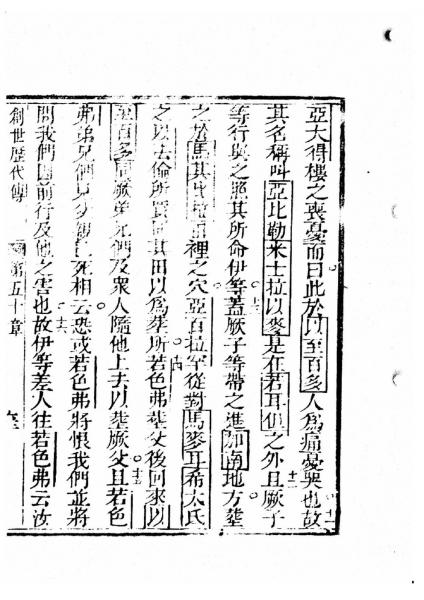 亞大得樓之喪憂而曰此於以至百多人為痛憂與也故
其名稱叫亞比勒米士拉以麥是在若耳但之外且厥子
等行與之照其所命伊等蓋厥子等帶之進加南地方塟
之於馬其 裡之穴亞百拉罕從對馬麥耳希太氏
之以去倫所買同其田以為塟所若色弗塟父後回來以
至百多同厥弟兄們及衆人隨他上去以塟厥父且若色
弗弟兄們見父親已死相云恐或若色弗將恨我們並將
問我們因前行及他之害也故伊等差人往若色弗云汝
創世歷代傳 第五十章